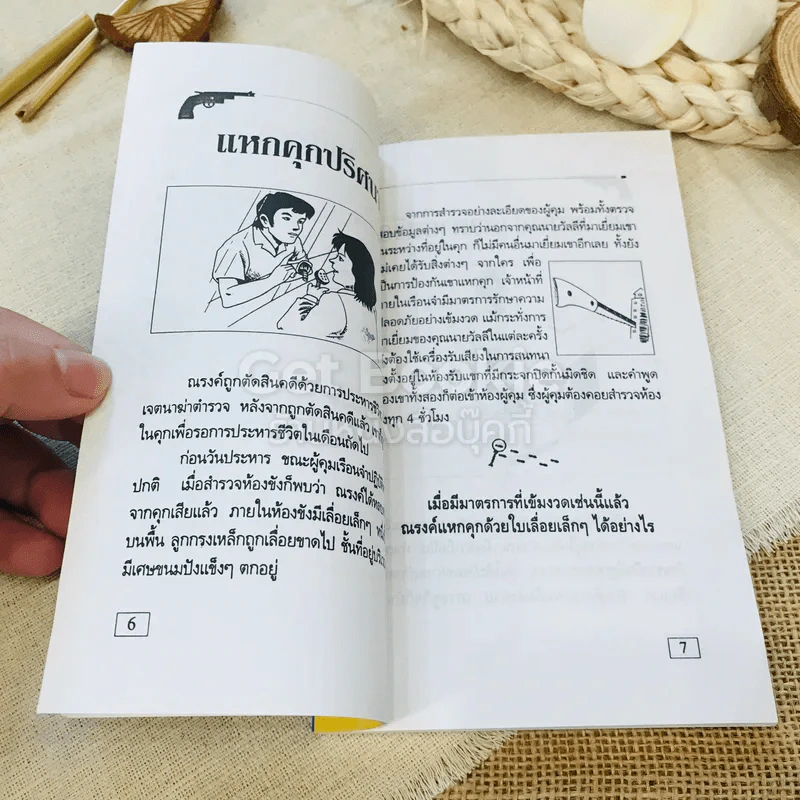 แหกคุกปริศนา
ณรงค์ถูกตัดสินคดีด้วยการประหารชีวิต
เจตนาฆ่าตำรวจ หลังจากถูกตัดสินคดีแล้ว
ในคุกเพื่อรอการประหารชีวิตในเดือนถัดไป
ก่อนวันประหาร ขณะผู้คุมเรือนจำปฏิบัติ
ปกติ เมื่อสำรวจห้องขังก็พบว่า ณรงค์ได้หลบ
จากคุกเสียแล้ว ภายในห้องขังมีเลื่อยเล็กๆ
บนพื้น ลูกกรงเหล็กถูกเลื่อยขาดไป ชั้นที่อยู่บริเวณ
มีเศษขนมปังแข็งๆ ตกอยู่
6
จากการสำรวจอย่างละเอียดของผู้คุม พร้อมทั้งตรวจ
สอบข้อมูลต่างๆ ทราบว่านอกจากคุณนายวัลลีที่มาเยี่ยมเขา
ในระหว่างที่อยู่ในคุก ก็ไม่มีคนอื่นมาเยี่ยมเขาอีกเลย ทั้งยัง
ไม่เคยได้รับสิ่งต่างๆ จากใคร เพื่อ
เป็นการป้องกันเขาแหกคุก เจ้าหน้าที่
ภายในเรือนจำมีมาตรการรักษาความ
ปลอดภัยอย่างเข้มงวด แม้กระทั่งการ
เยี่ยมของคุณนายวัลลีในแต่ละครั้ง
ต้องใช้เครื่องรับเสียงในการสนทนา
ตั้งอยู่ในห้องรับแขกที่มีกระจกปิดกั้นมิดชิด และคำพูด
ของเขาทั้งสองก็ต่อเข้าห้องผู้คุม ซึ่งผู้คุมต้องคอยสำรวจห้อง
ทุก 4 ชั่วโมง
เมื่อมีมาตรการที่เข้มงวดเช่นนี้แล้ว
ณรงค์แหกคุกด้วยใบเลื่อยเล็กๆ ได้อย่างไร
7